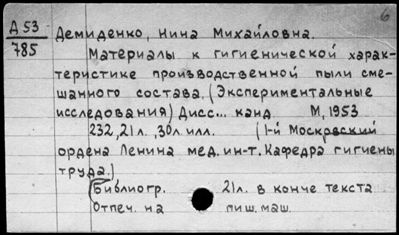 6
Д 53
785
Демиденко, Нина Михайловна.
Материалы к гигиенической харак-
теристике производственной пыли сме-
шанного состава. (Экспериментальные
исследования) Дисс... канд М, 1953
232, 21л., 30л илл. (1-й Москрвский
ордена Ленина мед. ин-т. Кафедра гигиены
труда.)
(Библиогр. 21л. в конче текста
Отпеч. на пиш. маш.